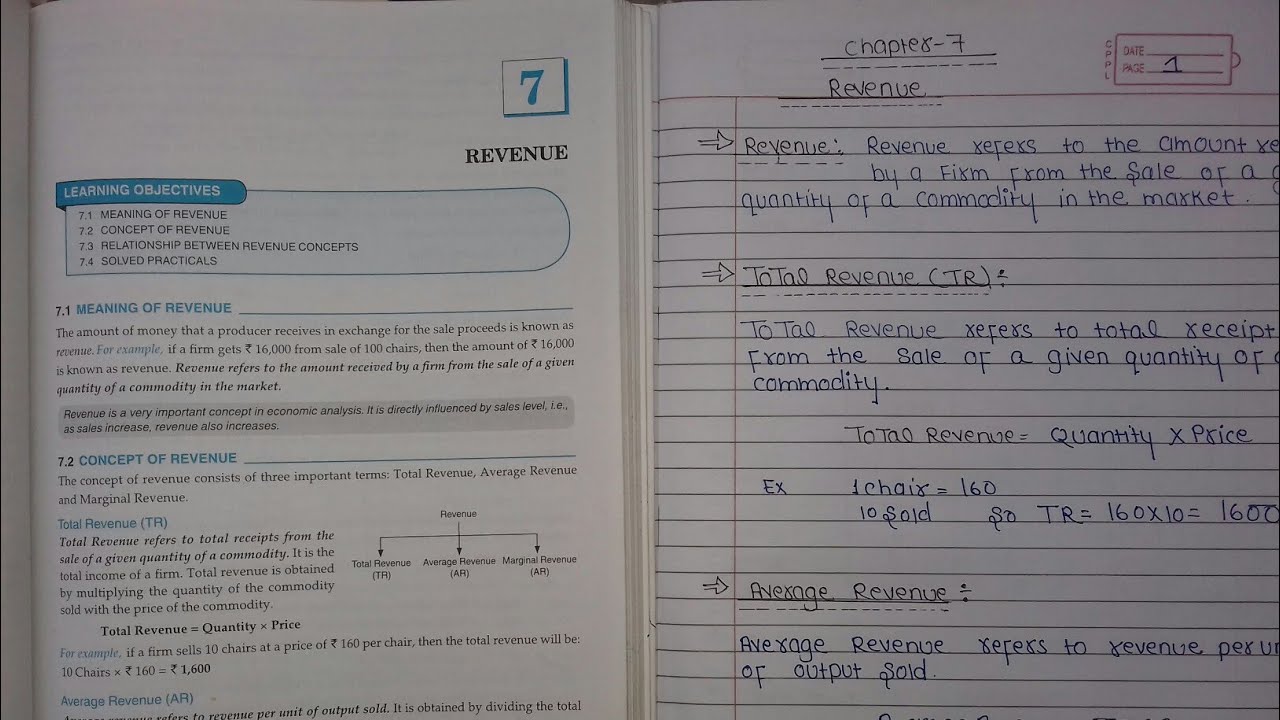 7
REVENUE
LEARNING OBJECTIVES
7.1 MEANING OF REVENUE
7.2 CONCEPT OF REVENUE
7.3 RELATIONSHIP BETWEEN REVENUE CONCEPTS
7.4 SOLVED PRACTICALS
7.1 MEANING OF REVENUE
The amount of money that a producer receives in exchange for the sale proceeds is known as
revenue. For example, if a firm gets ₹ 16,000 from sale of 100 chairs, then the amount of ₹ 16,000
is known as revenue. Revenue refers to the amount received by a firm from the sale of a given
quantity of a commodity in the market.
Revenue is a very important concept in economic analysis. It is directly influenced by sales level, i.e.,
as sales increase, revenue also increases.
7.2 CONCEPT OF REVENUE
The concept of revenue consists of three important terms: Total Revenue, Average Revenue
and Marginal Revenue.
Total Revenue (TR)
Total Revenue refers to total receipts from the
sale of a given quantity of a commodity. It is the
total income of a firm. Total revenue is obtained
by multiplying the quantity of the commodity
sold with the price of the commodity.
Revenue
Total Revenue Average Revenue Marginal Revenue
(TR) (AR) (AR)
Total Revenue = Quantity × Price
For example, if a firm sells 10 chairs at a price of ₹ 160 per chair, then the total revenue will be:
10 Chairs × ₹ 160 = ₹ 1,600
Average Revenue (AR)
Average revenue refers to revenue per unit of output sold. It is obtained by dividing the total
Chapter-7
Revenue
CPPL
DATE
PAGE 1
⇒ Revenue: Revenue refers to the amount re
by a Firm from the Sale of a g
quantity of a commodity in the market.
⇒ Total Revenue (TR) ÷
Total Revenue refers to total receipt
From the Sale of a given quantity of a
commodity.
Total Revenue = Quantity × Price
Ex 1 chair = 160
10 Sold So TR = 160×10 = 1600
⇒ Average Revenue ÷
Average Revenue refers to revenue per un
of output Sold.